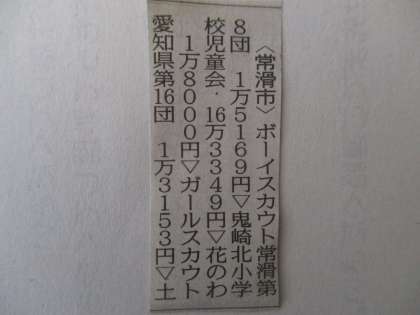 〈常滑市〉ボーイスカウト常滑第
8団 1万5169円▽鬼崎北小学
校児童会・16万3349円▽花のわ
1万8000円▽ガールスカウト
愛知県第16団 1万3153円▽土